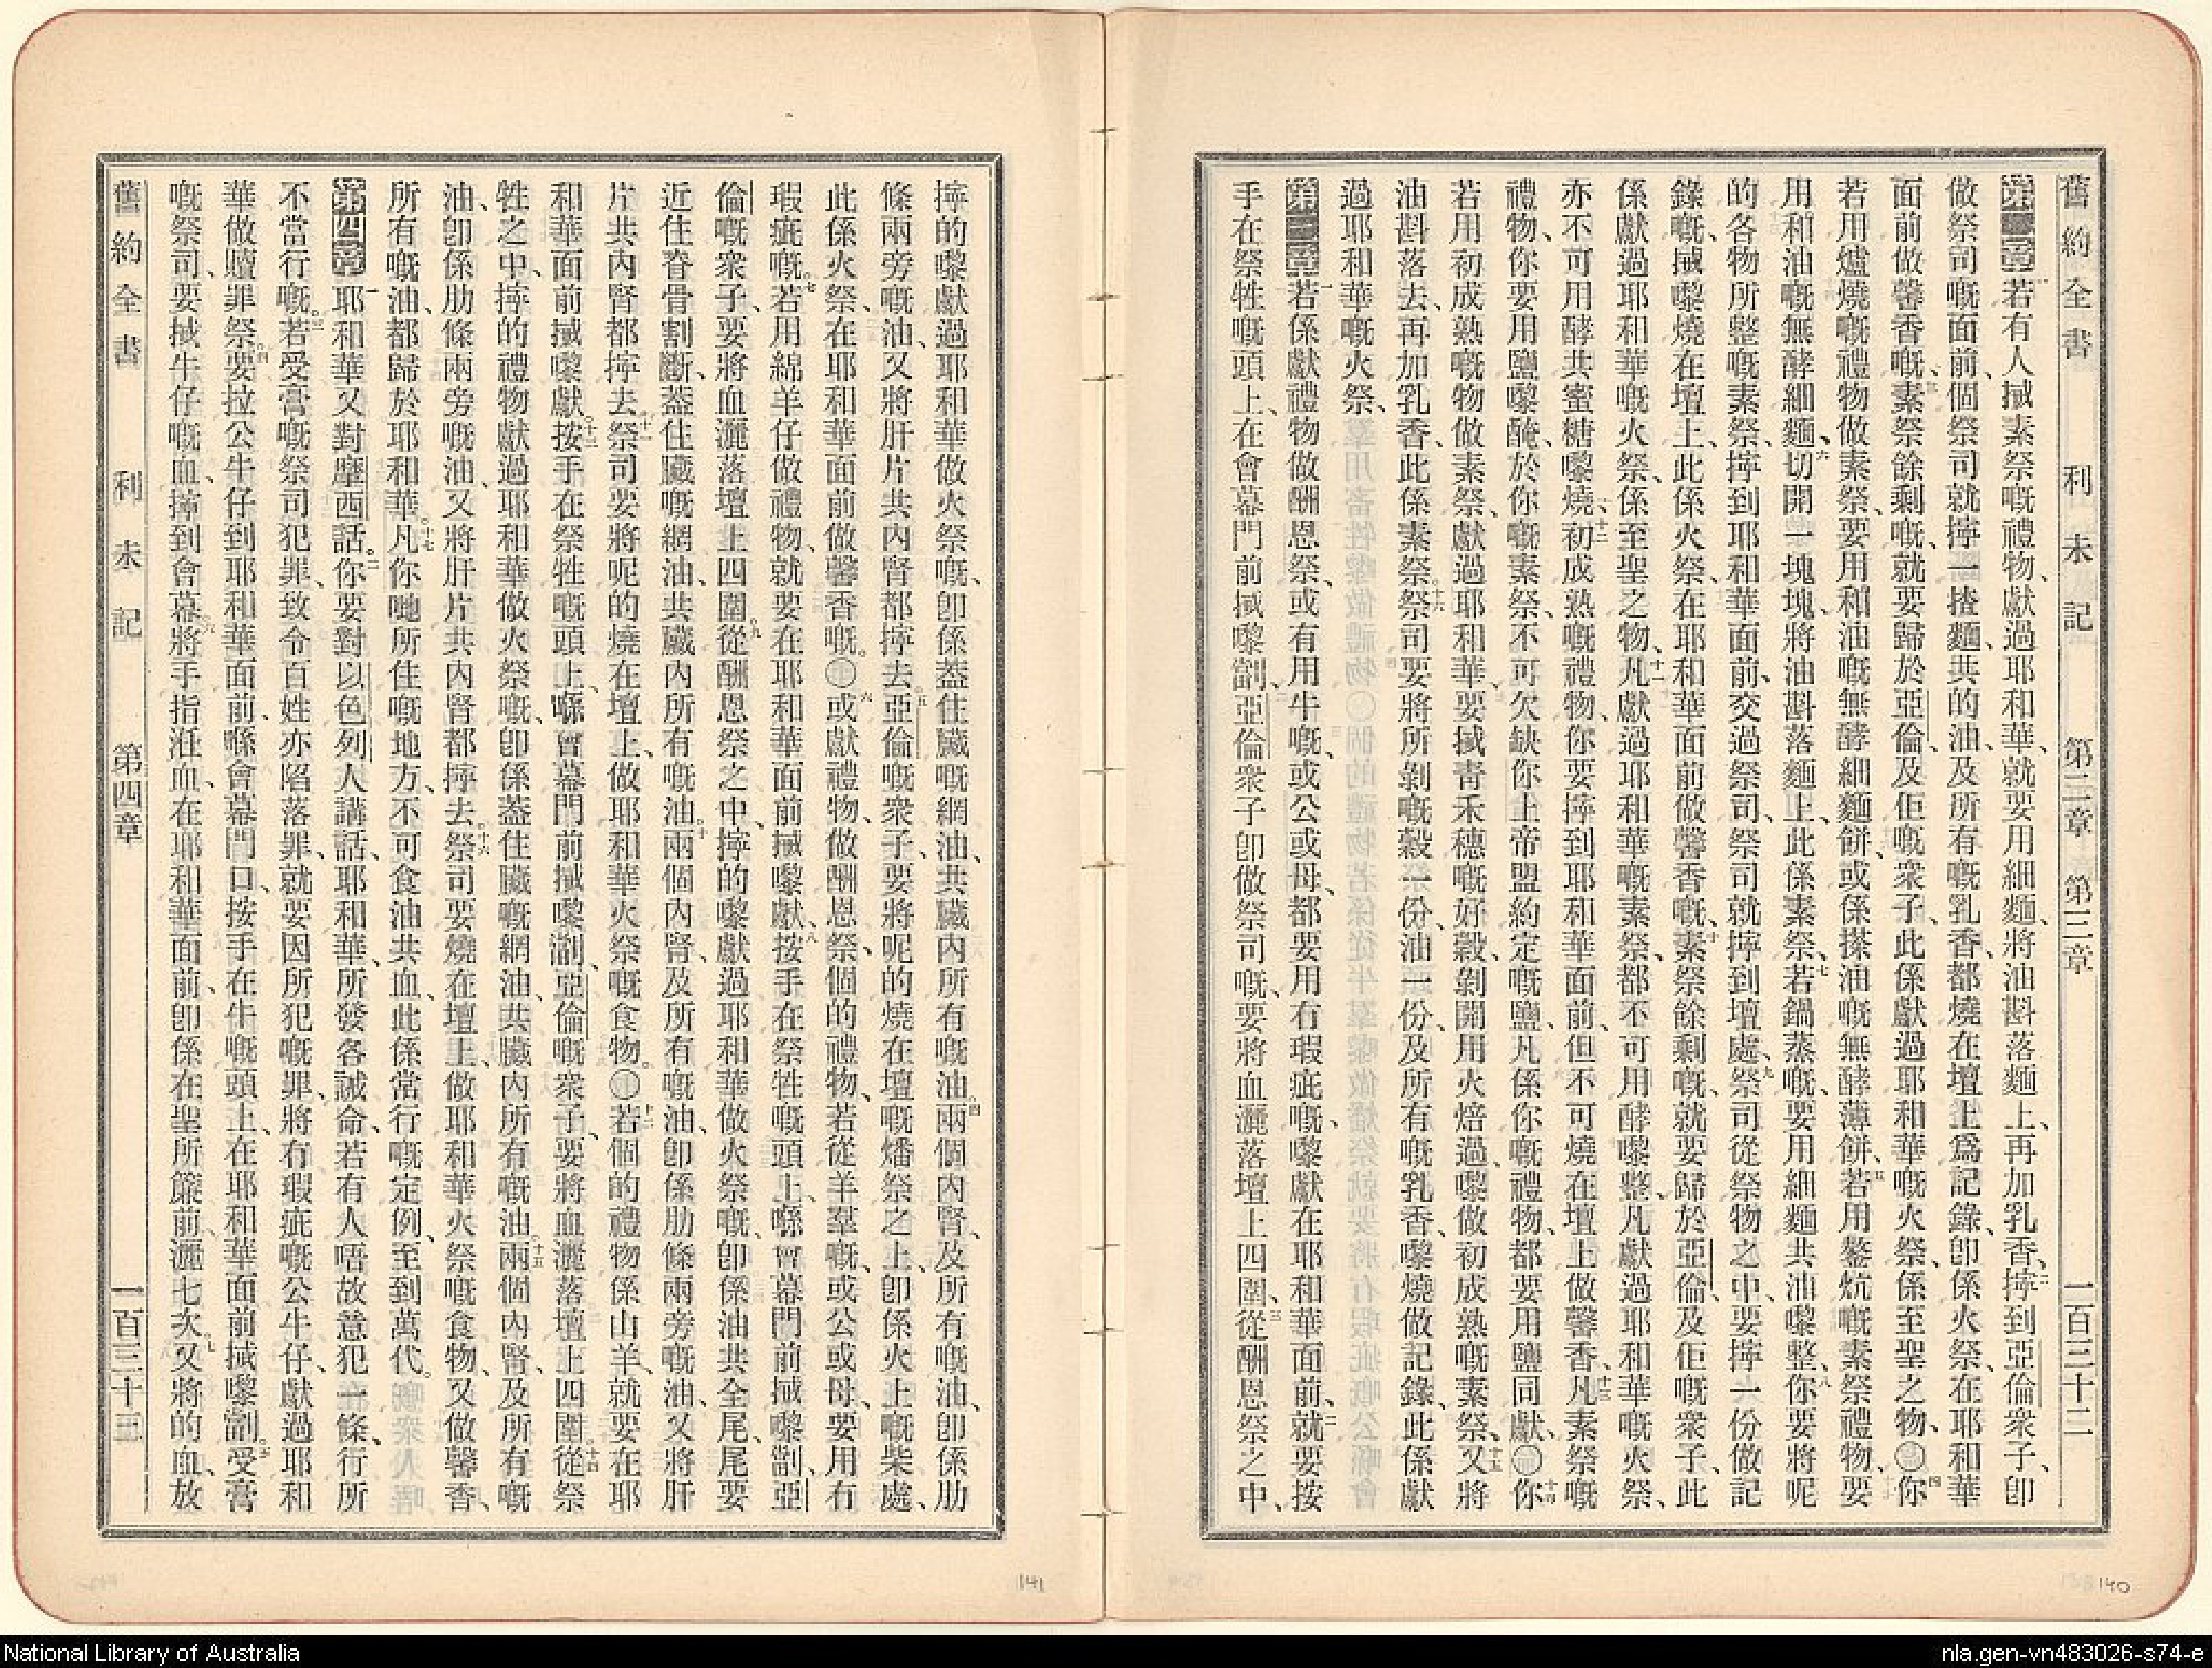 舊約全書　利未記　第二章　第三章　一百三十二
第二章一若有人㨢素祭嘅禮物、獻過耶和華、就要用細麵、將油斟落麵上、再加乳香、二擰到亞倫衆子、卽
做祭司嘅面前、個祭司就擰一揸麵、共的油、及所有嘅乳香、都燒在壇上爲記錄、卽係火祭、在耶和華
面前做馨香嘅、三素祭餘剩嘅、就要歸於亞倫、及佢嘅衆子、此係獻過耶和華嘅火祭、係至聖之物、○四你
若用爐燒嘅禮物做素祭、要用和油嘅無酵細麵餅、或係搽油嘅無酵薄餅、五若用鏊炕嘅素祭禮物、要
用和油嘅無酵細麵、六切開一塊塊、將油斟落麵上、此係素祭、七若鍋蒸嘅、要用細麵共油嚟整、八你要將呢
的各物所整嘅素祭、擰到耶和華面前、交過祭司、祭司就擰到壇處、九祭司從祭物之中、要擰一份做記
錄嘅、㨢嚟燒在壇上、此係火祭、在耶和華面前做馨香嘅、十素祭餘剩嘅、就要歸於亞倫、及佢嘅衆子、此
係獻過耶和華嘅火祭、係至聖之物、十一凡獻過耶和華嘅素祭、都不可用酵嚟整、凡獻過耶和華嘅火祭、
亦不可用酵共蜜糖嚟燒、十二初成熟嘅禮物、你要擰到耶和華面前、但不可燒在壇上做馨香、十三凡素祭嘅
禮物、你要用鹽嚟醃、於你嘅素祭、不可欠缺你上帝盟約定嘅鹽、凡係你嘅禮物、都要用鹽同獻、○十四你
若用初成熟嘅禮物做素祭、獻過耶和華、要㨢靑禾穗嘅好穀、剝開用火焙過、嚟做初成熟嘅素祭、十五又將
油斟落去、再加乳香、此係素祭、十六祭司要將所剝嘅穀一份、油一份、及所有嘅乳香、嚟燒做記錄、此係獻
過耶和華嘅火祭、
第三章一若係獻禮物做酬恩祭、或有用牛嘅、或公或母、都要用冇瑕疵嘅、嚟獻在耶和華面前、二就要按
手在祭牲嘅頭上、在會幕門前㨢嚟劏、亞倫衆子卽做祭司嘅、要將血灑落壇上四圍、三從酬恩祭之中、
擰的嚟獻過耶和華做火祭嘅、卽係葢住臟嘅網油、共臟內所有嘅油、四兩個內腎、及所有嘅油、卽係肋
條兩旁嘅油、又將肝片共內腎都擰去、五亞倫嘅衆子、要將呢的燒在壇嘅燔祭之上、卽係火上嘅柴處、
此係火祭、在耶和華面前做馨香嘅。○六或獻禮物、做酬恩祭、個的禮物、若從羊羣嘅、或公或母、要用冇
瑕疵嘅。七若用綿羊仔做禮物、就要在耶和華面前㨢嚟獻、八按手在祭牲嘅頭上、喺會幕門前㨢嚟劏、亞
倫嘅衆子、要將血灑落壇上四圍、九從酬恩祭之中、擰的嚟獻過耶和華做火祭嘅、卽係油共全尾、尾要
近住脊骨割斷、葢住臟嘅網油、共臟內所有嘅油、十兩個內腎、及所有嘅油、卽係肋條兩旁嘅油、又將肝
片共內腎都擰去、十一祭司要將呢的燒在壇上、做耶和華火祭嘅食物。○十二若個的禮物係山羊、就要在耶
和華面前㨢嚟獻、十三按手在祭牲嘅頭上、喺會幕門前㨢嚟劏、亞倫嘅衆子、要將血灑落壇上四圍、十四從祭
牲之中、擰的禮物獻過耶和華做火祭嘅、卽係葢住臟嘅網油、共臟內所有嘅油、十五兩個內腎、及所有嘅
油、卽係肋條兩旁嘅油、又將肝片共內腎都擰去、十六祭司要燒在壇上、做耶和華火祭嘅食物、又做馨香、
所有嘅油、都歸於耶和華。十七凡你哋所住嘅地方、不可食油共血、此係當行嘅定例、至到萬代。
第四章一耶和華又對摩西話、二你要對以色列人講話、耶和華所發各誡命、若有人唔故意犯一條、行所
不當行嘅。三若受膏嘅祭司犯罪、致令百姓亦陷落罪、就要因所犯嘅罪、將冇瑕疵嘅公牛仔、獻過耶和
華做贖罪祭。四要拉公牛仔到耶和華面前、喺會幕門口、按手在牛嘅頭上、在耶和華面前㨢嚟劏。五受膏
嘅祭司、要㨢牛仔嘅血、擰到會幕、六將手指涯血、在耶和華面前、卽係在聖所簾前、灑七次、七又將的血、放
舊約全書　利未記　第四章　一百三十三
141
140
National Library of Australia
nla.gen-vn483026-s74-e